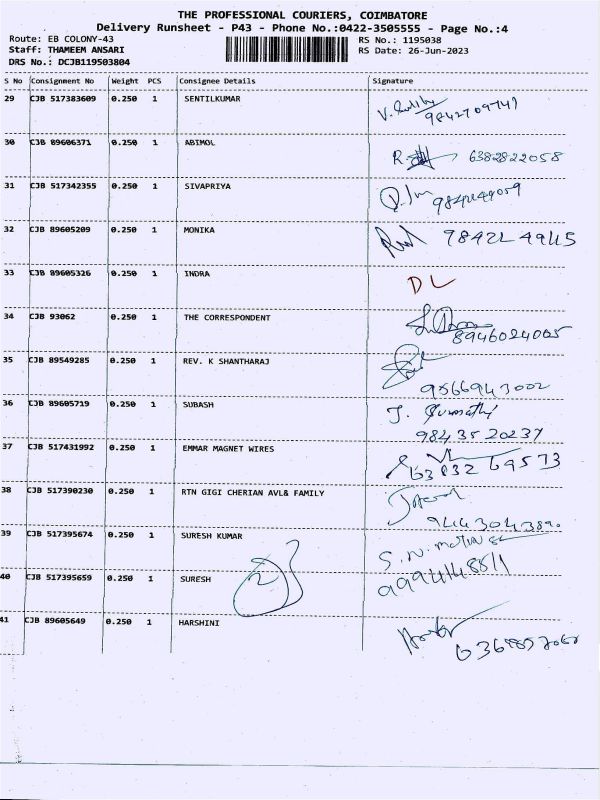 THE PROFESSIONAL COURIERS, COIMBATORE
Delivery Runsheet - P43 - Phone No.:0422-3505555 - Page No.:4
Route: EB COLONY-43 RS No.: 1195038
Staff: THAMEEM ANSARI RS Date: 26-Jun-2023
DRS No.: DCJB119503804
S No Consignment No Weight PCS Consignee Details Signature
29 CJB 517383609 0.250 1 SENTILKUMAR
9842709741
30 CJB 89606371 0.250 1 ABIMOL
6382822058
31 CJB 517342355 0.250 1 SIVAPRIYA
32 CJB 89605209 0.250 1 MONIKA
33 CJB 89605326 0.250 1 INDRA DL
34 CJB 93062 0.250 1 THE CORRESPONDENT
8946024005
35 CJB 89549285 0.250 1 REV. K SHANTHARAJ
9566943002
36 CJB 89605719 0.250 1 SUBASH J. Sumathi
9843520237
37 CJB 517431992 0.250 1 EMMAR MAGNET WIRES
6383269573
38 CJB 517390230 0.250 1 RTN GIGI CHERIAN AVL& FAMILY
9443043890
39 CJB 517395674 0.250 1 SURESH KUMAR
40 CJB 517395659 0.250 1 SURESH 2
41 CJB 89605649 0.250 1 HARSHINI